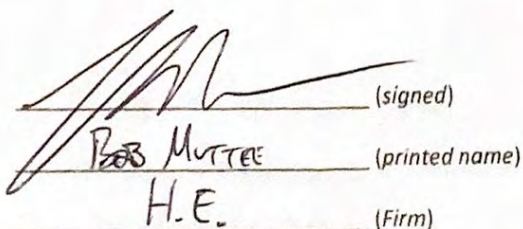 (signed)
BOB MUTTEE (printed name)
H.E. (Firm)